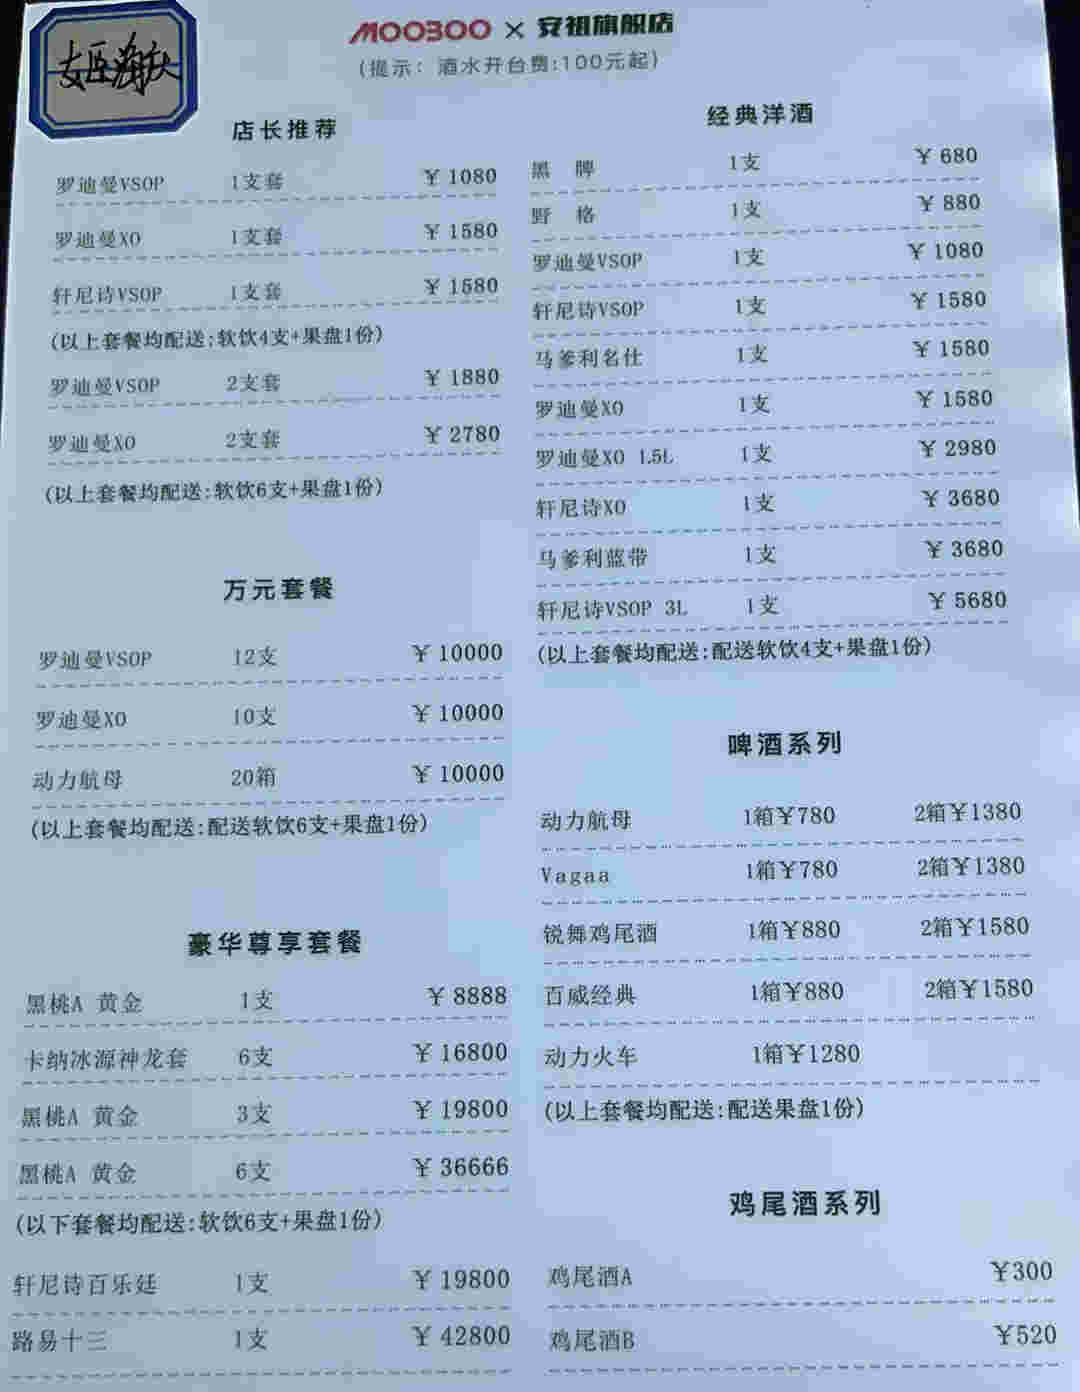 MOOBOO × 安祖旗舰店
(提示：酒水开台费:100元起)
店长推荐
罗迪曼VSOP 1支套 ¥ 1080
罗迪曼XO 1支套 ¥ 1580
轩尼诗VSOP 1支套 ¥ 1580
(以上套餐均配送:软饮4支+果盘1份)
罗迪曼VSOP 2支套 ¥ 1880
罗迪曼XO 2支套 ¥ 2780
(以上套餐均配送:软饮6支+果盘1份)
万元套餐
罗迪曼VSOP 12支 ¥ 10000
罗迪曼XO 10支 ¥ 10000
动力航母 20箱 ¥ 10000
(以上套餐均配送:配送软饮6支+果盘1份)
豪华尊享套餐
黑桃A 黄金 1支 ¥ 8888
卡纳冰源神龙套 6支 ¥ 16800
黑桃A 黄金 3支 ¥ 19800
黑桃A 黄金 6支 ¥ 36666
(以下套餐均配送:软饮6支+果盘1份)
轩尼诗百乐廷 1支 ¥ 19800
路易十三 1支 ¥ 42800
经典洋酒
黑 牌 1支 ¥ 680
野 格 1支 ¥ 880
罗迪曼VSOP 1支 ¥ 1080
轩尼诗VSOP 1支 ¥ 1580
马爹利名仕 1支 ¥ 1580
罗迪曼XO 1支 ¥ 1580
罗迪曼XO 1.5L 1支 ¥ 2980
轩尼诗XO 1支 ¥ 3680
马爹利蓝带 1支 ¥ 3680
轩尼诗VSOP 3L 1支 ¥ 5680
(以上套餐均配送:配送软饮4支+果盘1份)
啤酒系列
动力航母 1箱¥780 2箱¥1380
Vagaa 1箱¥780 2箱¥1380
锐舞鸡尾酒 1箱¥880 2箱¥1580
百威经典 1箱¥880 2箱¥1580
动力火车 1箱¥1280
(以上套餐均配送:配送果盘1份)
鸡尾酒系列
鸡尾酒A ¥300
鸡尾酒B ¥520